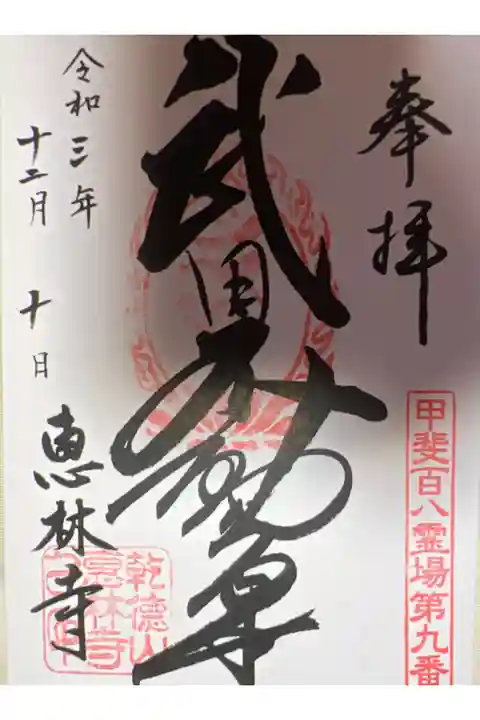 奉拝
甲斐百八霊場第九番
武田不動尊
令和三年
十二月十日
恵林寺
乾徳山
恵林寺